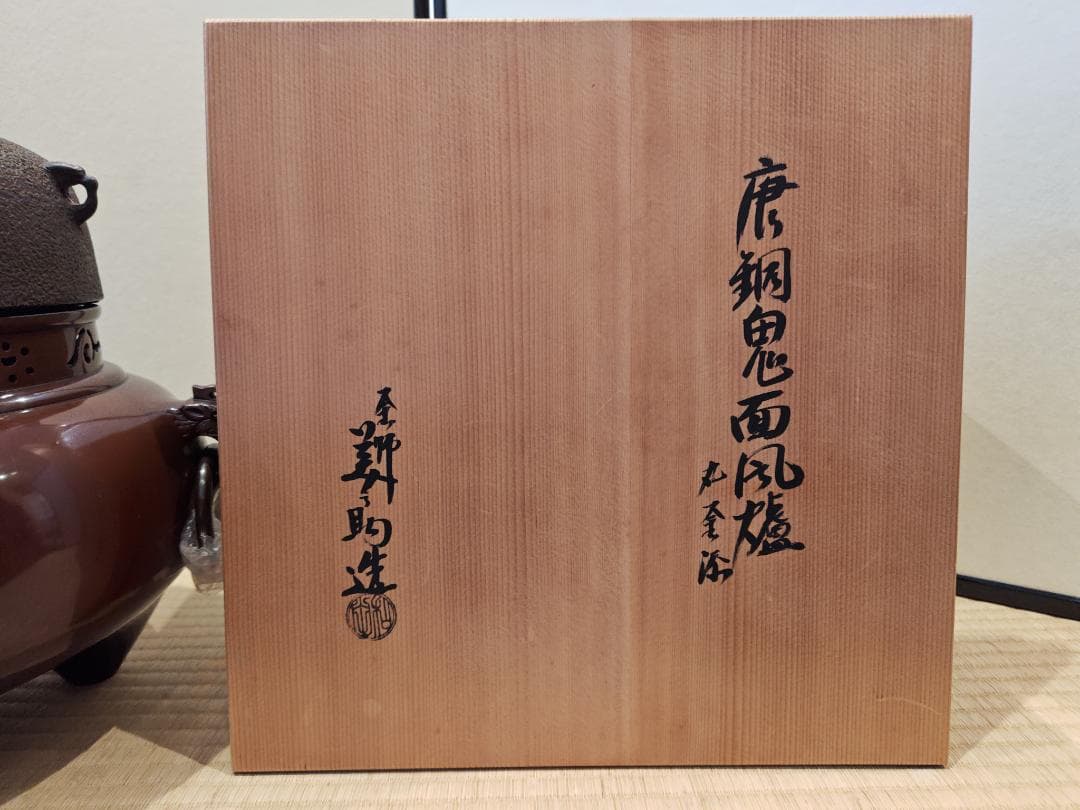 唐銅鬼面風爐
丸釜添
釜師 美之助造